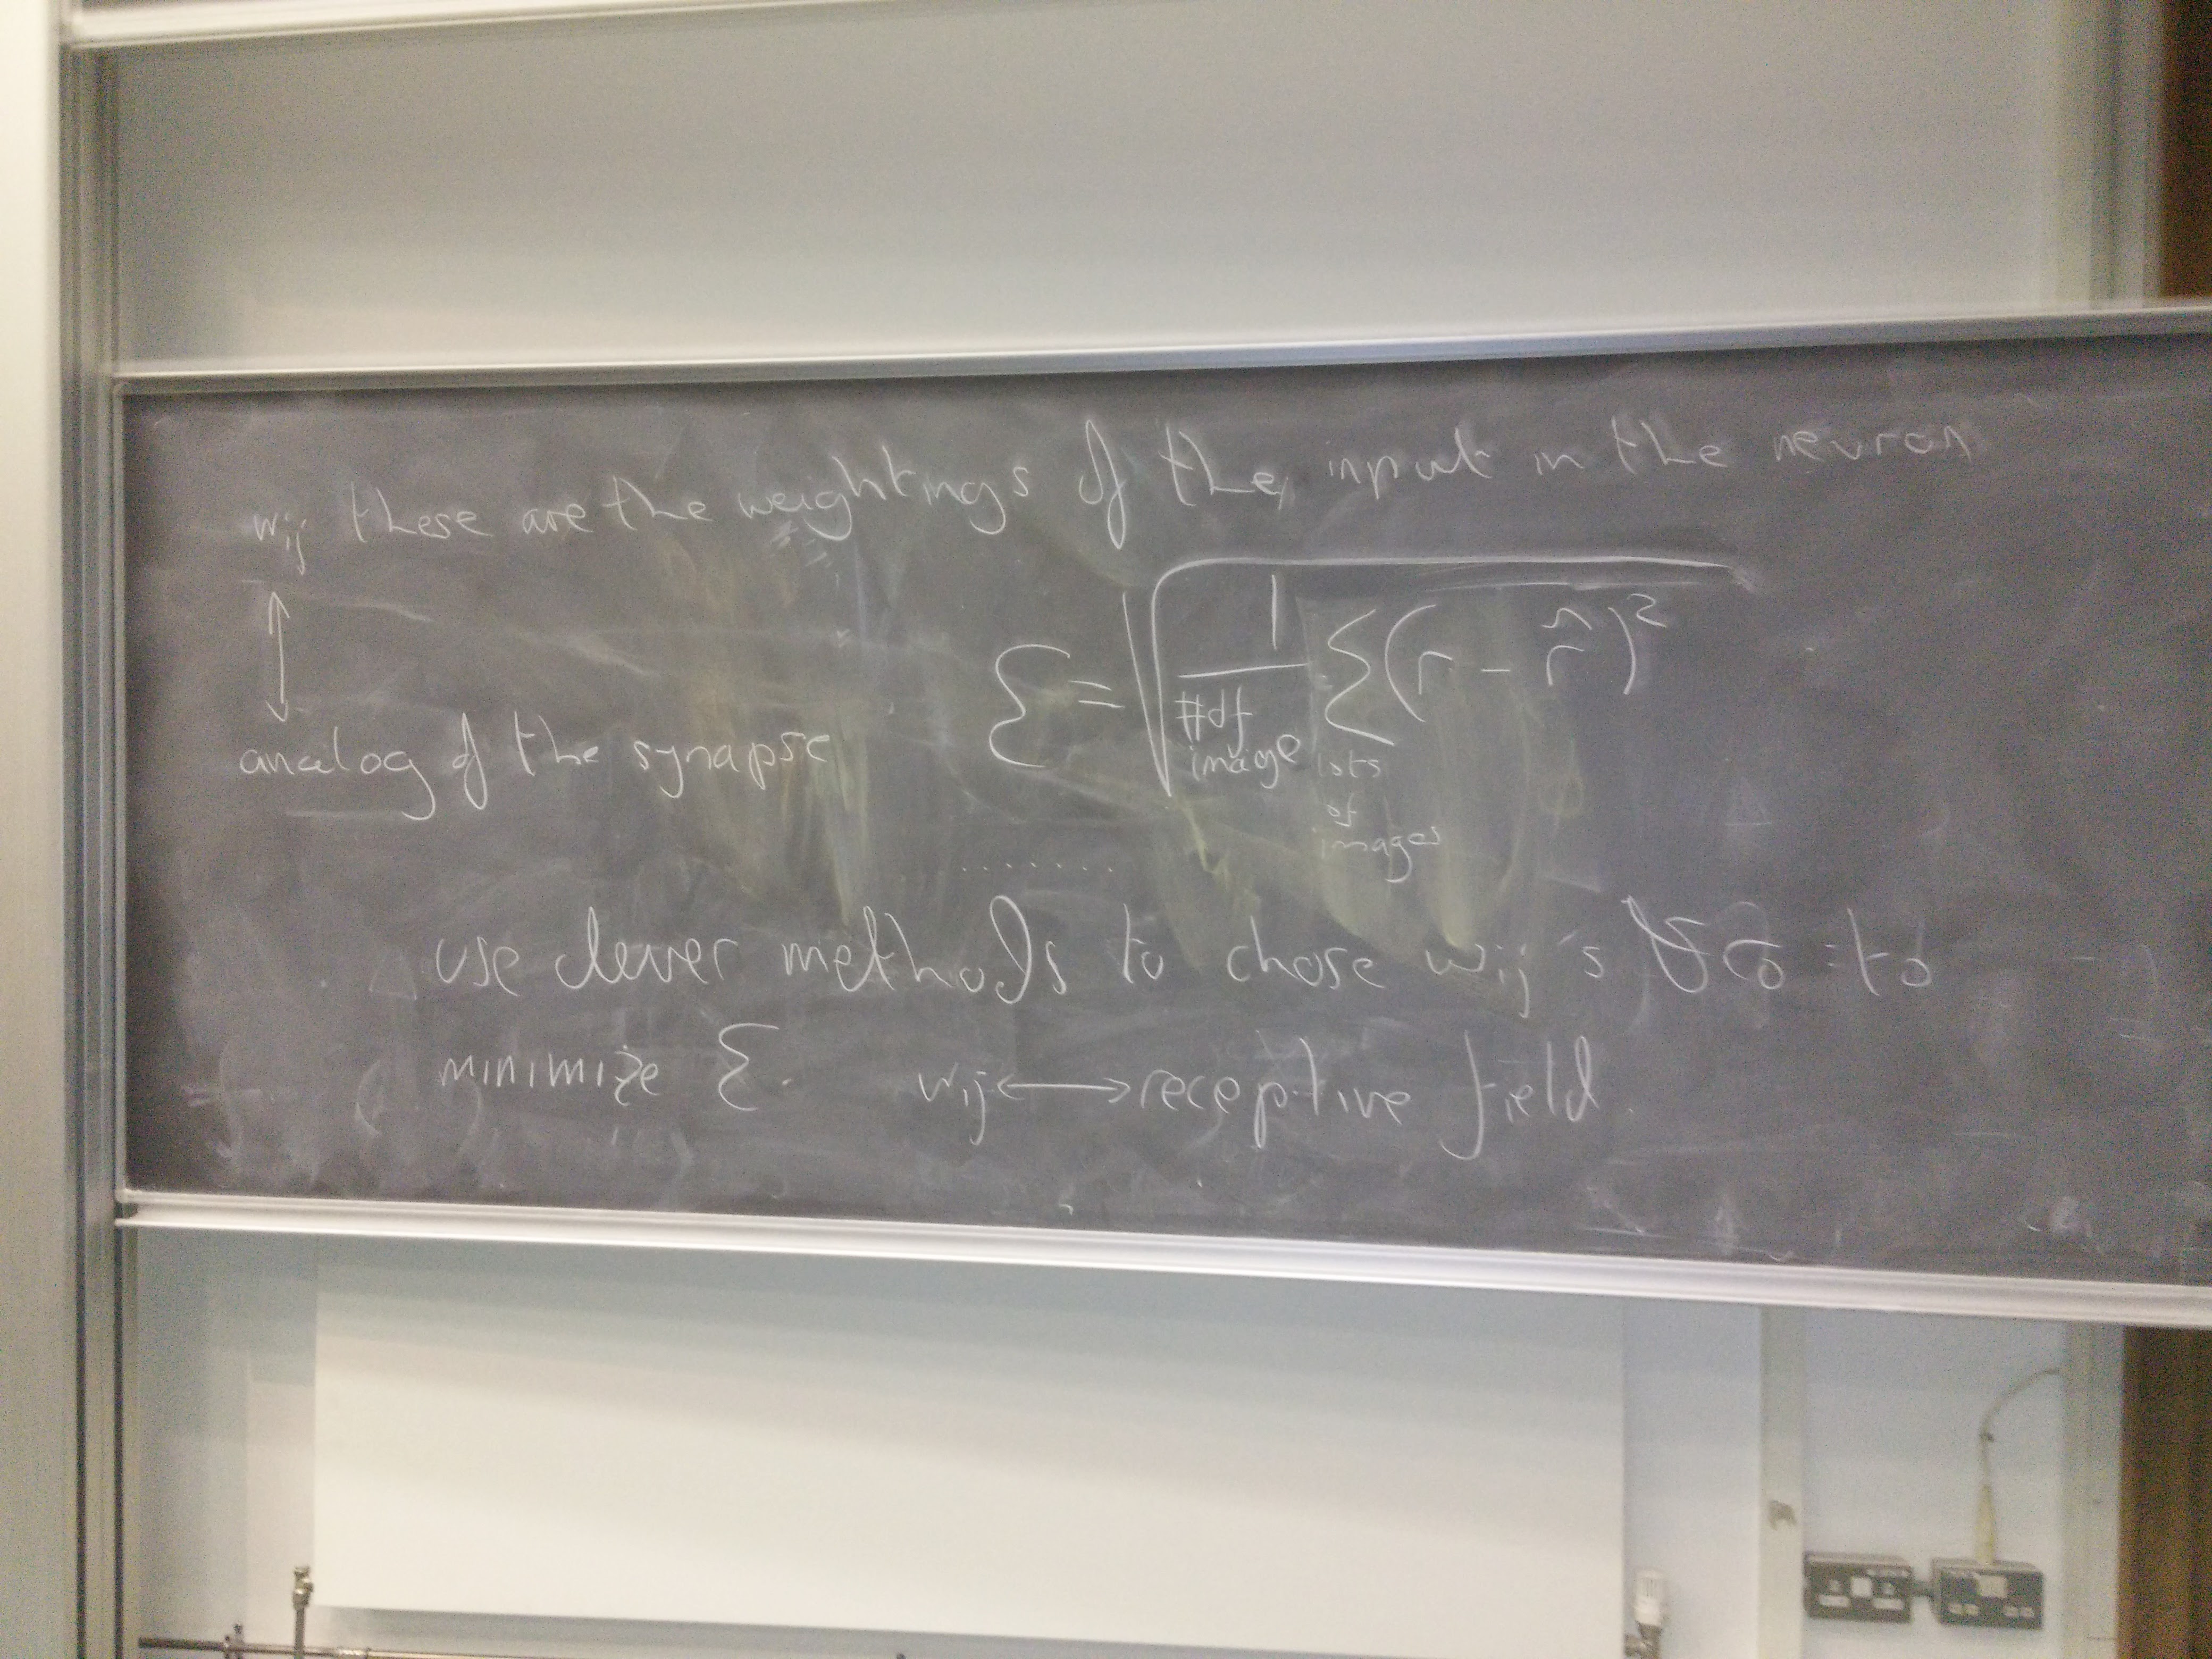 wij these are the weightings of the input in the neuron
↕
analog of the synapse
Ɛ = √(1/#of image Σ(r - r̂)²
lots
of
images
........
use clever methods to chose wij's to
minimize Ɛ. wij ⟷ receptive field.